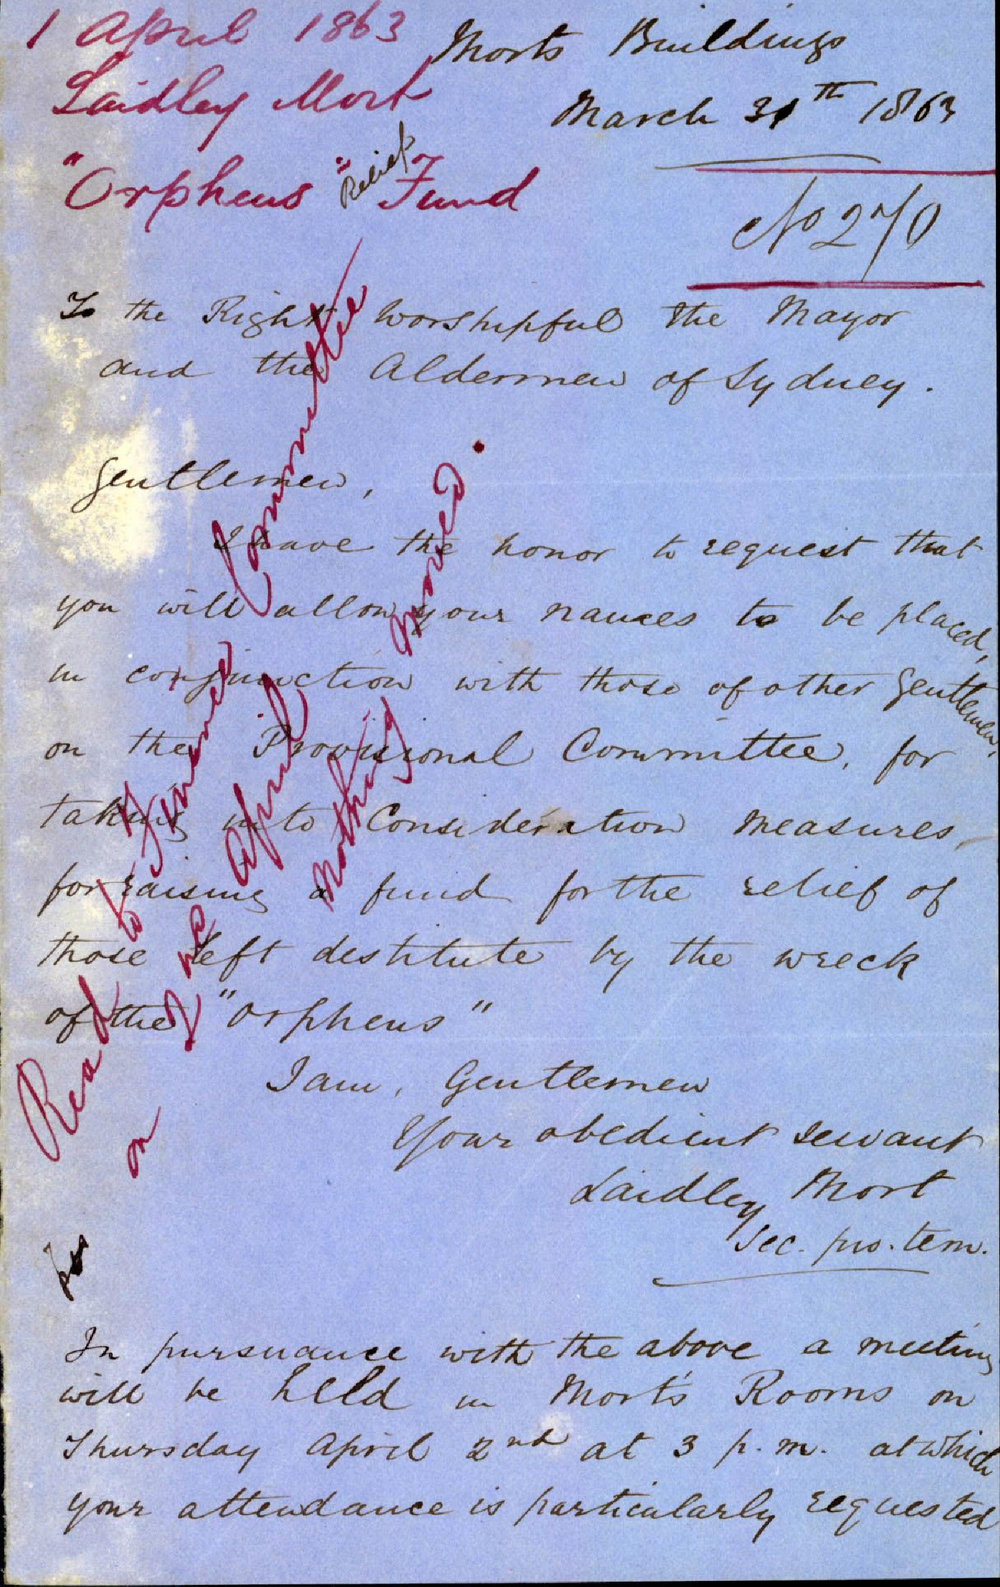 1 April 1863
Laidley Mort
"Orpheus" Relief Fund
Morts Buildings
March 31th 1863
No 270
To the Right Worshipful the Mayor
and the Aldermen of Sydney.
Gentlemen,
I have the honor to request that
you will allow your names to be placed,
in conjunction with those of other Gentlemen
on the Provisional Committee, for
taking into Consideration measures,
for raising a fund for the relief of
those left destitute by the wreck
of the "Orpheus"
I am, Gentlemen
Your obedient servant
Laidley Mort
Sec. pro. tem.
Read to Finance Committee
on 2nd April
nothing moved.
In pursuance with the above a meeting
will be held in Mort's Rooms on
Thursday April 2nd at 3 p.m. at which
your attendance is particularly requested